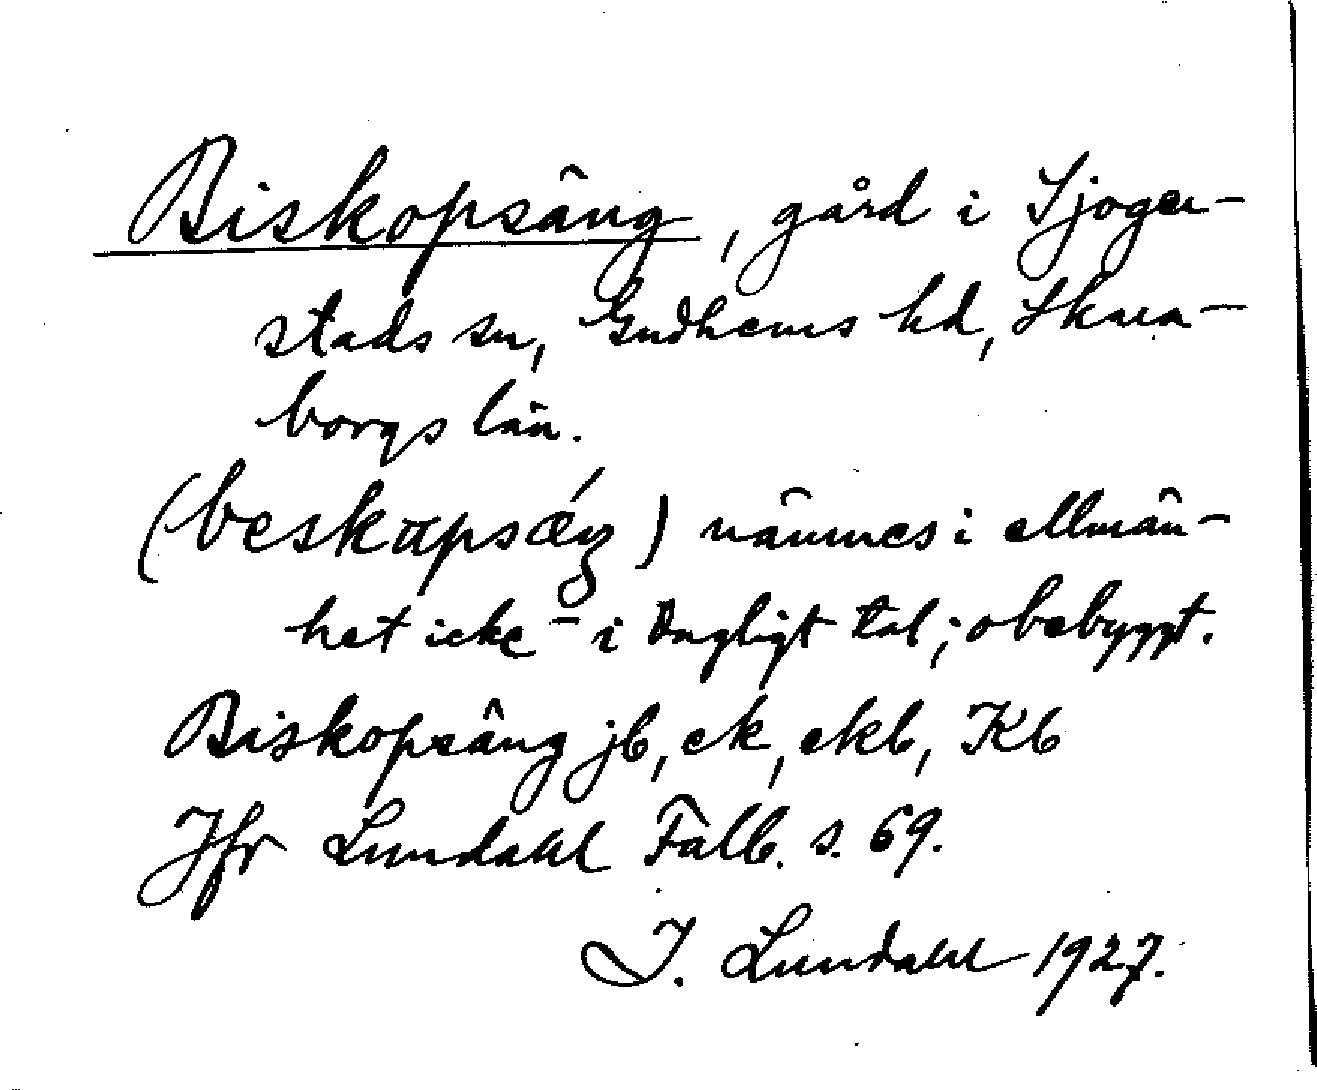 Biskopsäng, gård i Sjoger-
stads sn, Gudhems hd, Skara-
borgs län.
(beskapsæ´ŋ) nämnes i allmän-
het icke i dagligt tal; obebyggt.
Biskopsäng jb, ek, ekb, Kb
Jfr Lundahl Falb. s. 69.
I. Lundahl 1927.